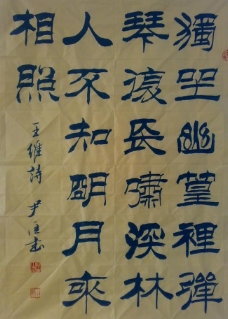 獨坐幽篁裡彈
琴復長嘯深林
人不知明月來
相照
王維詩 尹恒书